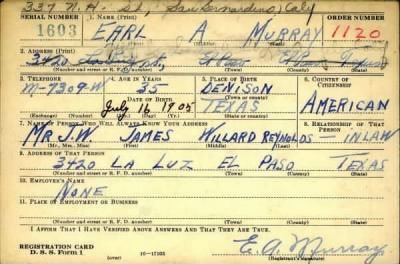 337 N. H. St, San Bernardino, Caly
SERIAL NUMBER 1. Name (Print) ORDER NUMBER
1603 EARL A MURRAY 1120
(First) (Middle) (Last)
2. Address (Print)
3420 El Paso El Paso Texas
(Number and street or R. F. D. number) (Town) (County) (State)
3. Telephone 4. Age in Years 5. Place of Birth 6. Country of Citizenship
M-7309-W 35 DENISON
Date of Birth (Town or county)
July 16 1905 TEXAS AMERICAN
(Exchange) (Number) (Mo.) (Day) (Yr.) (State or country)
7. Name of Person Who Will Always Know Your Address 8. Relationship of That Person
MR. J. W. JAMES WILLARD REYNOLDS — INLAW
(Mr., Mrs., Miss) (First) (Middle) (Last)
9. Address of That Person
3420 LA LUZ EL PASO TEXAS
(Number and street or R. F. D. number) (Town) (County) (State)
10. Employer's Name
NONE
11. Place of Employment or Business
(Number and street or R. F. D. number) (Town) (County) (State)
I Affirm That I Have Verified Above Answers and That They Are True.
REGISTRATION CARD
D. S. S. Form 1 16-17105 E. A. Murray
(over)